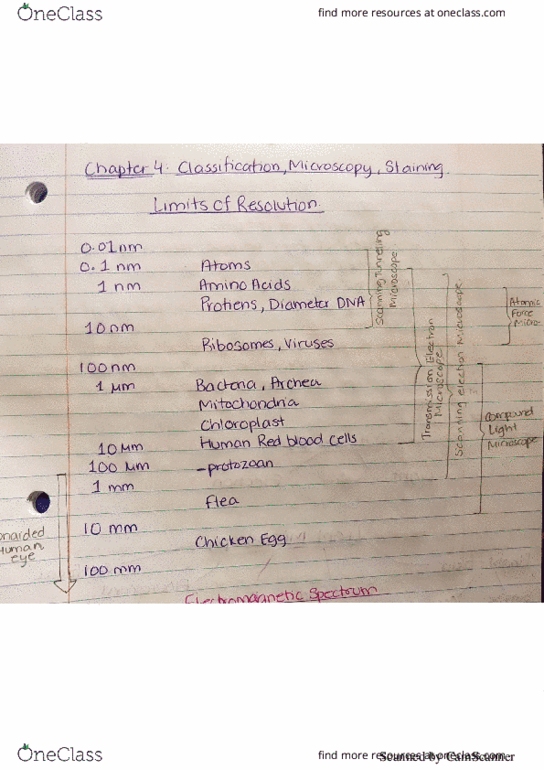 OneClass
find more resources at oneclass.com
Chapter 4: Classification, Microscopy, Staining.
Limits of Resolution.
0.01nm
0.1 nm Atoms
1 nm Amino Acids
Protiens, Diameter DNA
10nm
Ribosomes, Viruses
100nm
1 µm Bacteria, Archea
Mitochondria
Chloroplast
10 µm Human Red blood cells
100 µm -protozoan
1 mm
flea
10 mm
Chicken Egg
100 mm
Scanning Tunnelling
Microscope
Transmission Electron
Microscope
Scanning electron Microscope
Atomic
Force
Micro-
Compound
Light
Microscope
Human
eye
Electromagnetic Spectrum
OneClass
find more resources at oneclass.com
Scanned by CamScanner